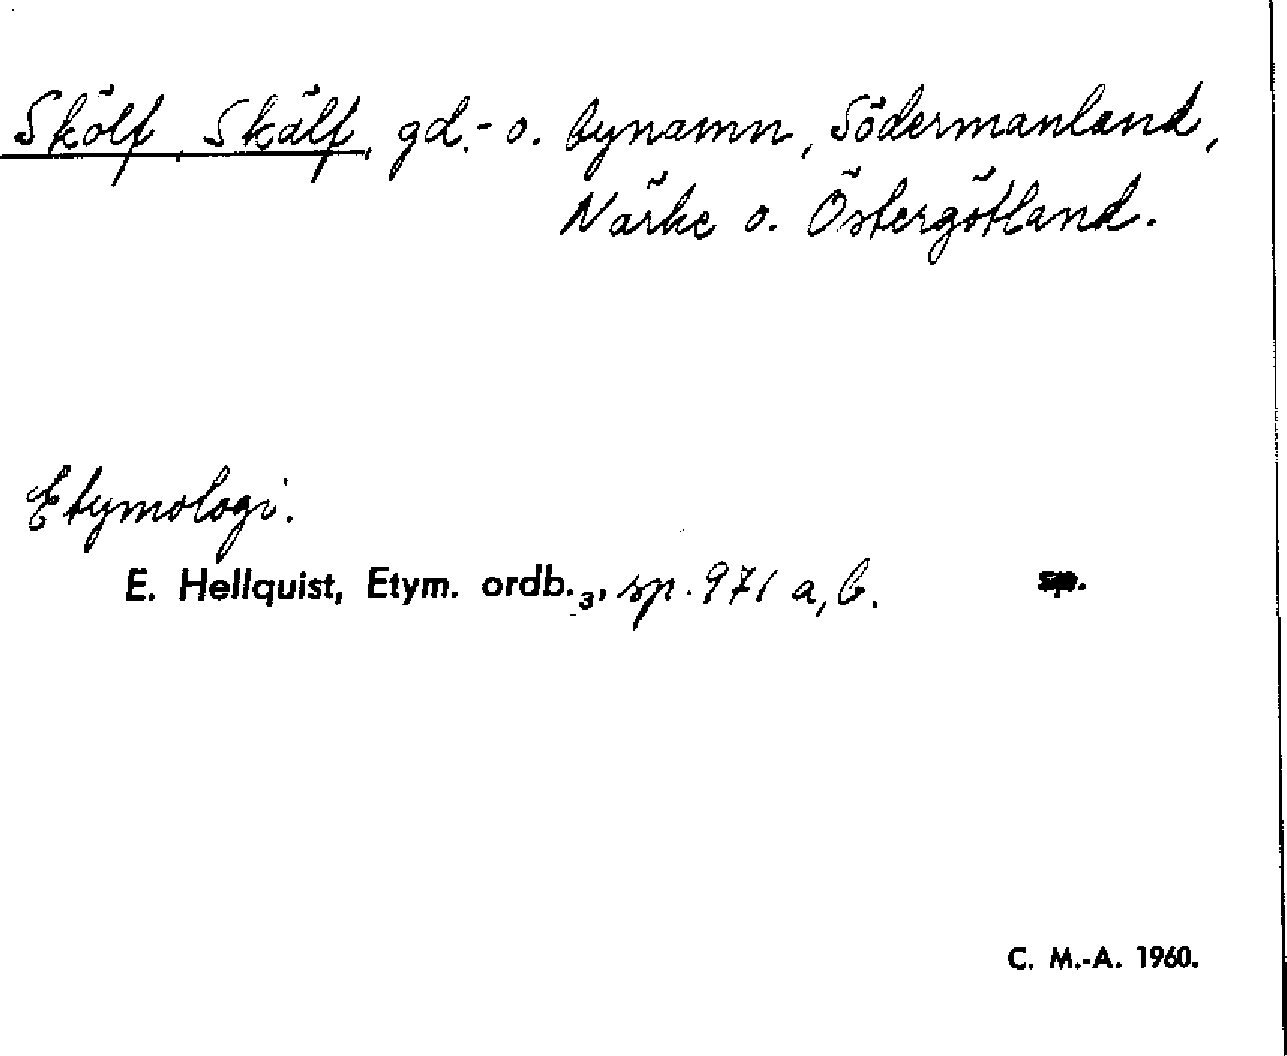 Skölf, Skälf, gd.- o. bynamn, Södermanland,
Närke o. Östergötland.
Etymologi.
E. Hellquist, Etym. ordb.3, sp. 971 a, b. sp.
C. M.-A. 1960.